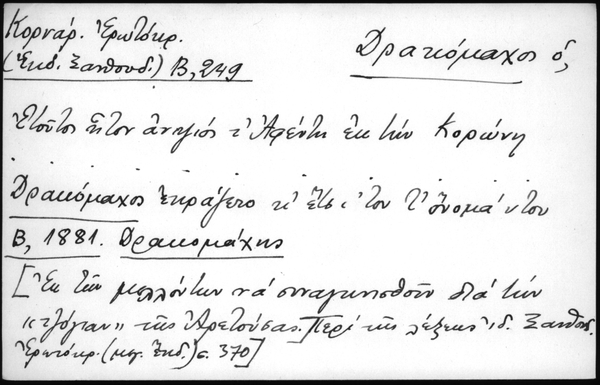 Κορνάρ. Ἐρωτόκρ.
(Ἐκδ. Ξανθουδ.) Β, 249
Δρακόμαχος ὁ,
Ἐτοῦτος ἦτον ἀνηψιός τ' Ἀφέντη ἐκ τὴν Κορώνη
Δρακόμαχος ἐκράζετο κ' ἔτσι 'τον τ' ὄνομά ντου
Β, 1881. Δρακομάχης
[Ἐκ τῶν μελλόντων νά συναγωνισθοῦν διά τήν
"τζόγιαν" τῆς Ἀρετούσας. Περί τῆς λέξεως ἰδ. Ξανθουδ.
Ἐρωτόκρ. (μεγ. Ἐκδ.) σ. 370]